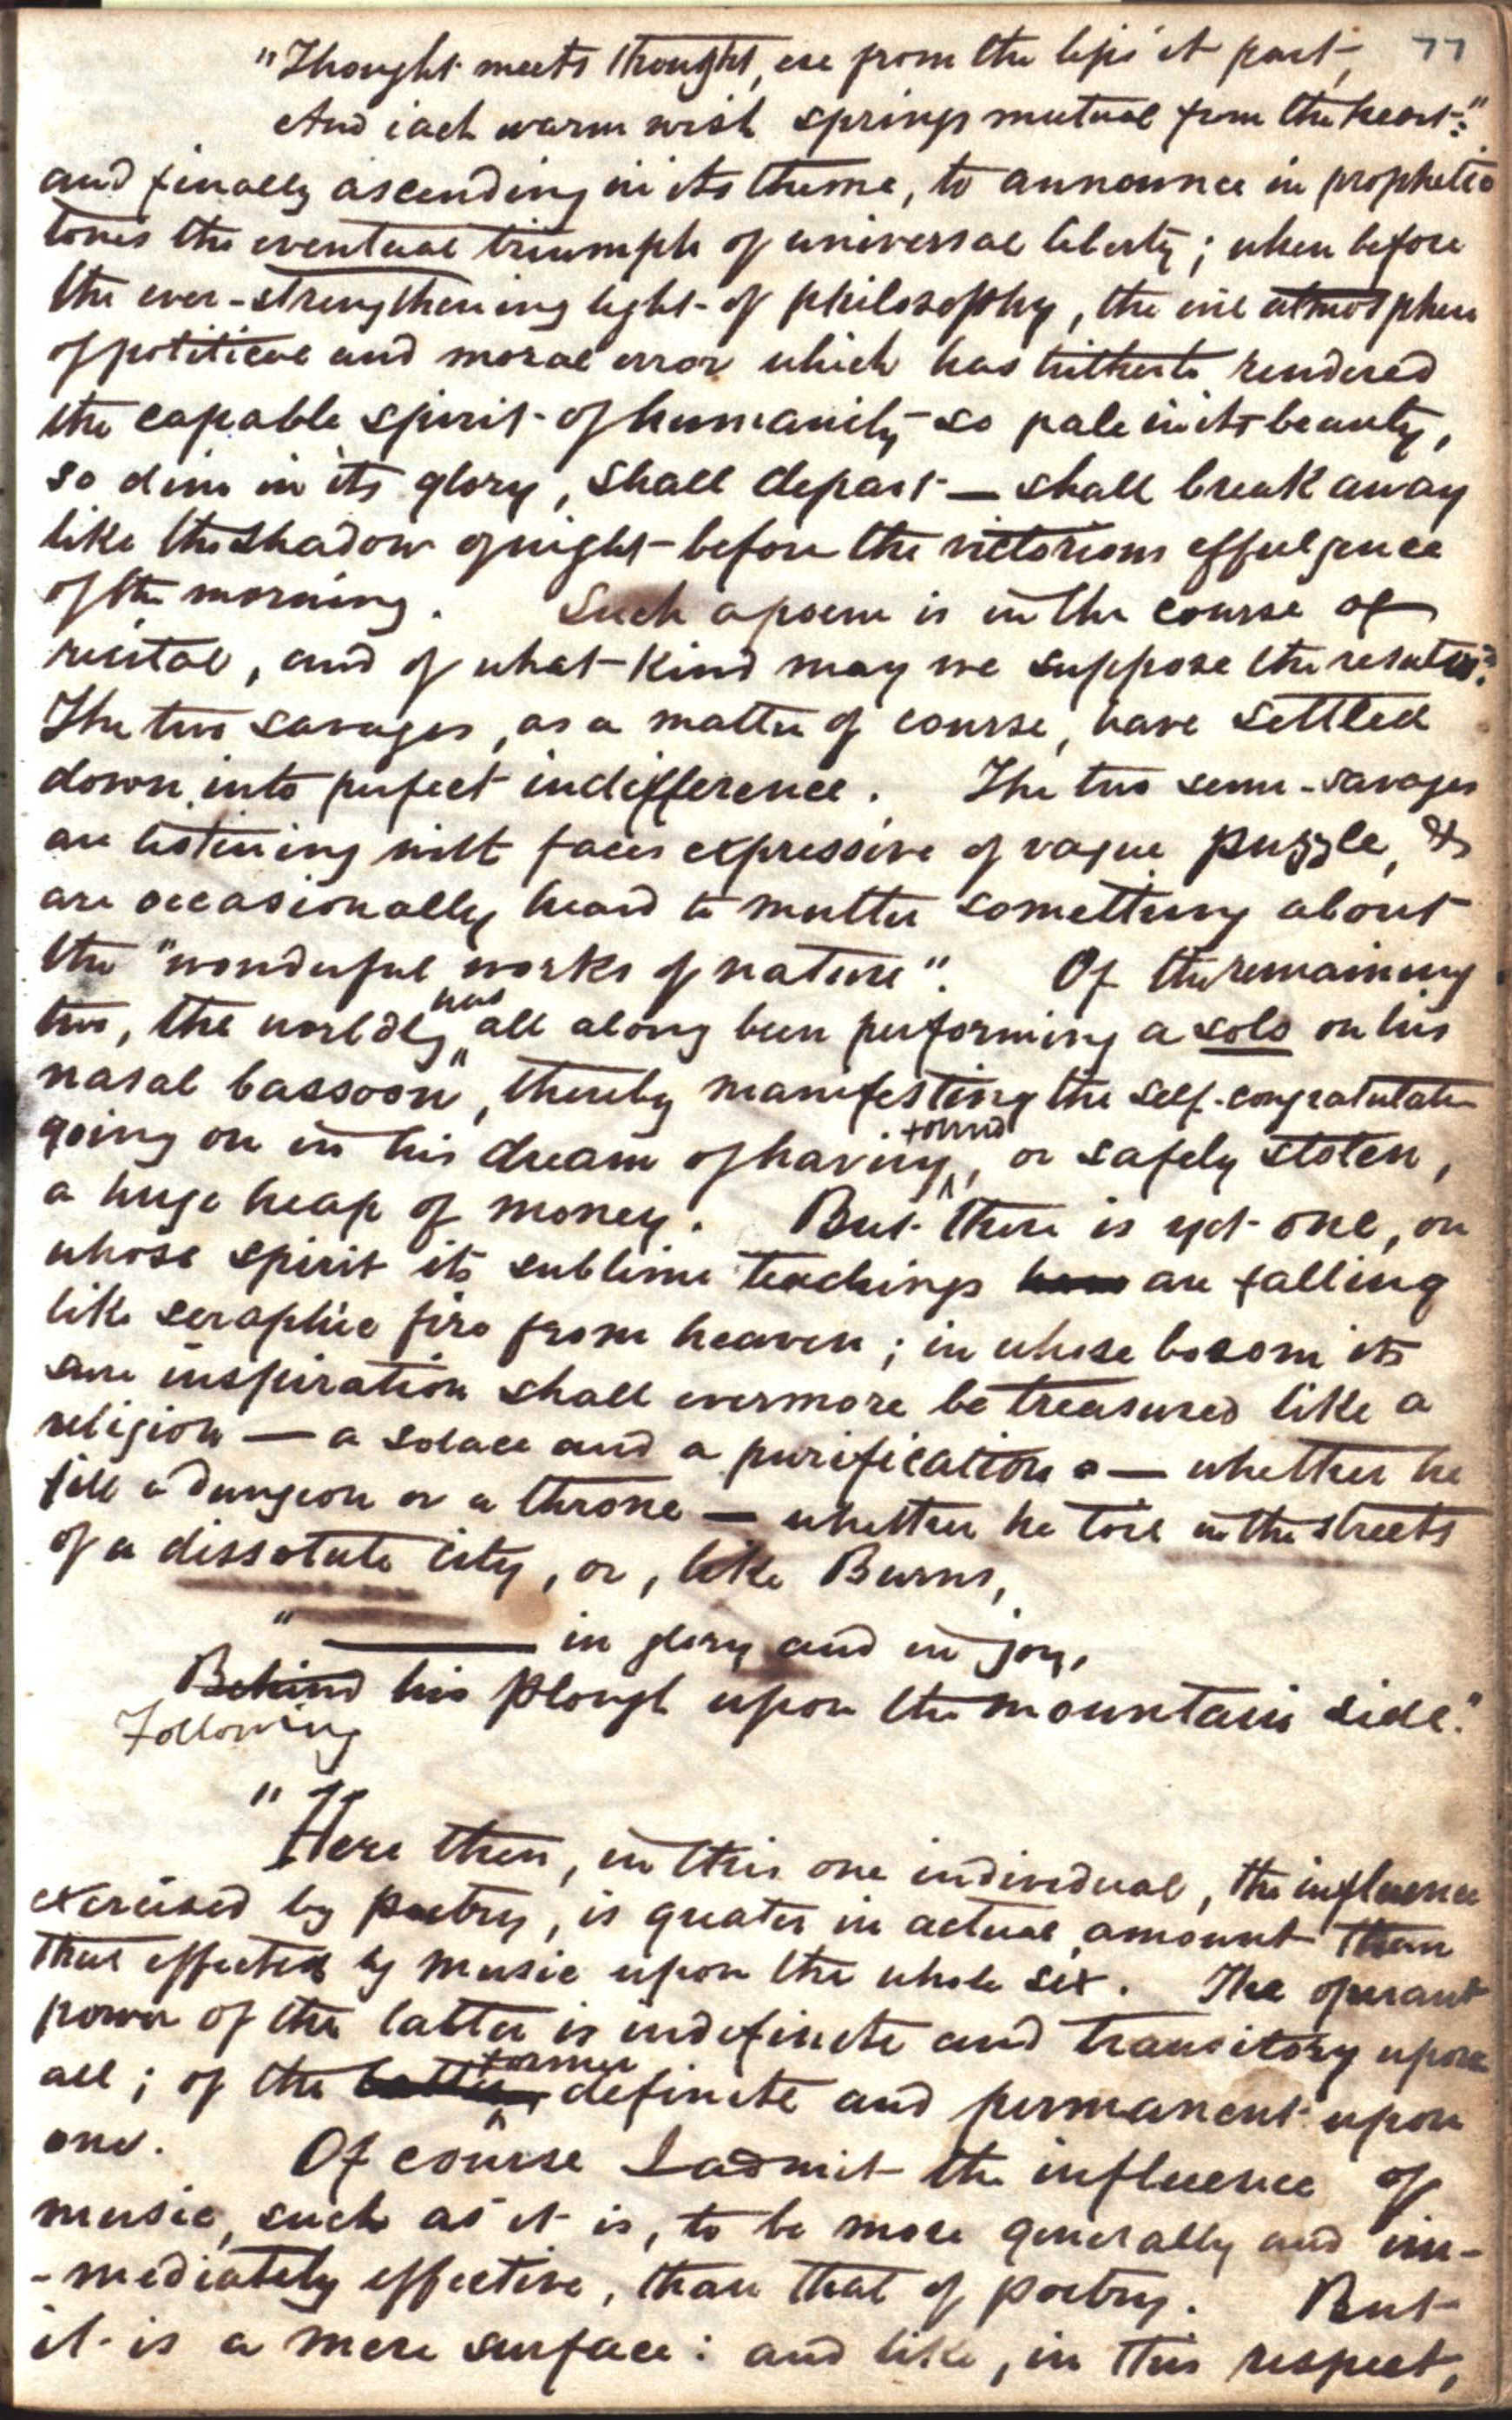 77
"Thought meets thought, ere from the lips it part,
And each warm wish springs mutual from the heart:"
and finally ascending in its theme, to announce in prophetic
tones the eventual triumph of universal liberty; when before
the ever-strengthening light of philosophy, the evil atmosphere
of political and moral error which has hitherto rendered
the capable spirit of humanity so pale in its beauty,
so dim in its glory, shall depart — shall break away
like the shadow of night before the victorious effulgence
of the morning. Such a poem is in the course of
recital, and of what kind may we suppose the results?
The two savages, as a matter of course, have settled
down into perfect indifference. The two semi-savages
are listening with faces expressive of vague puzzle, &
are occasionally heard to mutter something about
the "wonderful works of nature". Of the remaining
two, the worldly has all along been performing a solo on his
"nasal bassoon", thereby manifesting the self-congratulation
going on in his dream of having found, or safely stolen,
a huge heap of money. But there is yet one, on
whose spirit its sublime teachings have are falling
like seraphic fire from heaven; in whose bosom its
sure inspiration shall evermore be treasured like a
religion — a solace and a purification — whether he
fill a dungeon or a throne — whether he toil in the streets
of a dissolute city, or, like Burns,
"——— in glory and in joy,
Behind his plough upon the mountain side."
Following
"
Here then, in this one individual, the influence
exercised by poetry, is greater in actual amount than
that effected by music upon the whole six. The operant
power of the latter is indefinite and transitory upon
all; of the latter, former definite and permanent upon
one. Of course I admit the influence of
music, such as it is, to be more generally and im-
-mediately effective, than that of poetry. But
it is a mere surface: and like, in this respect,